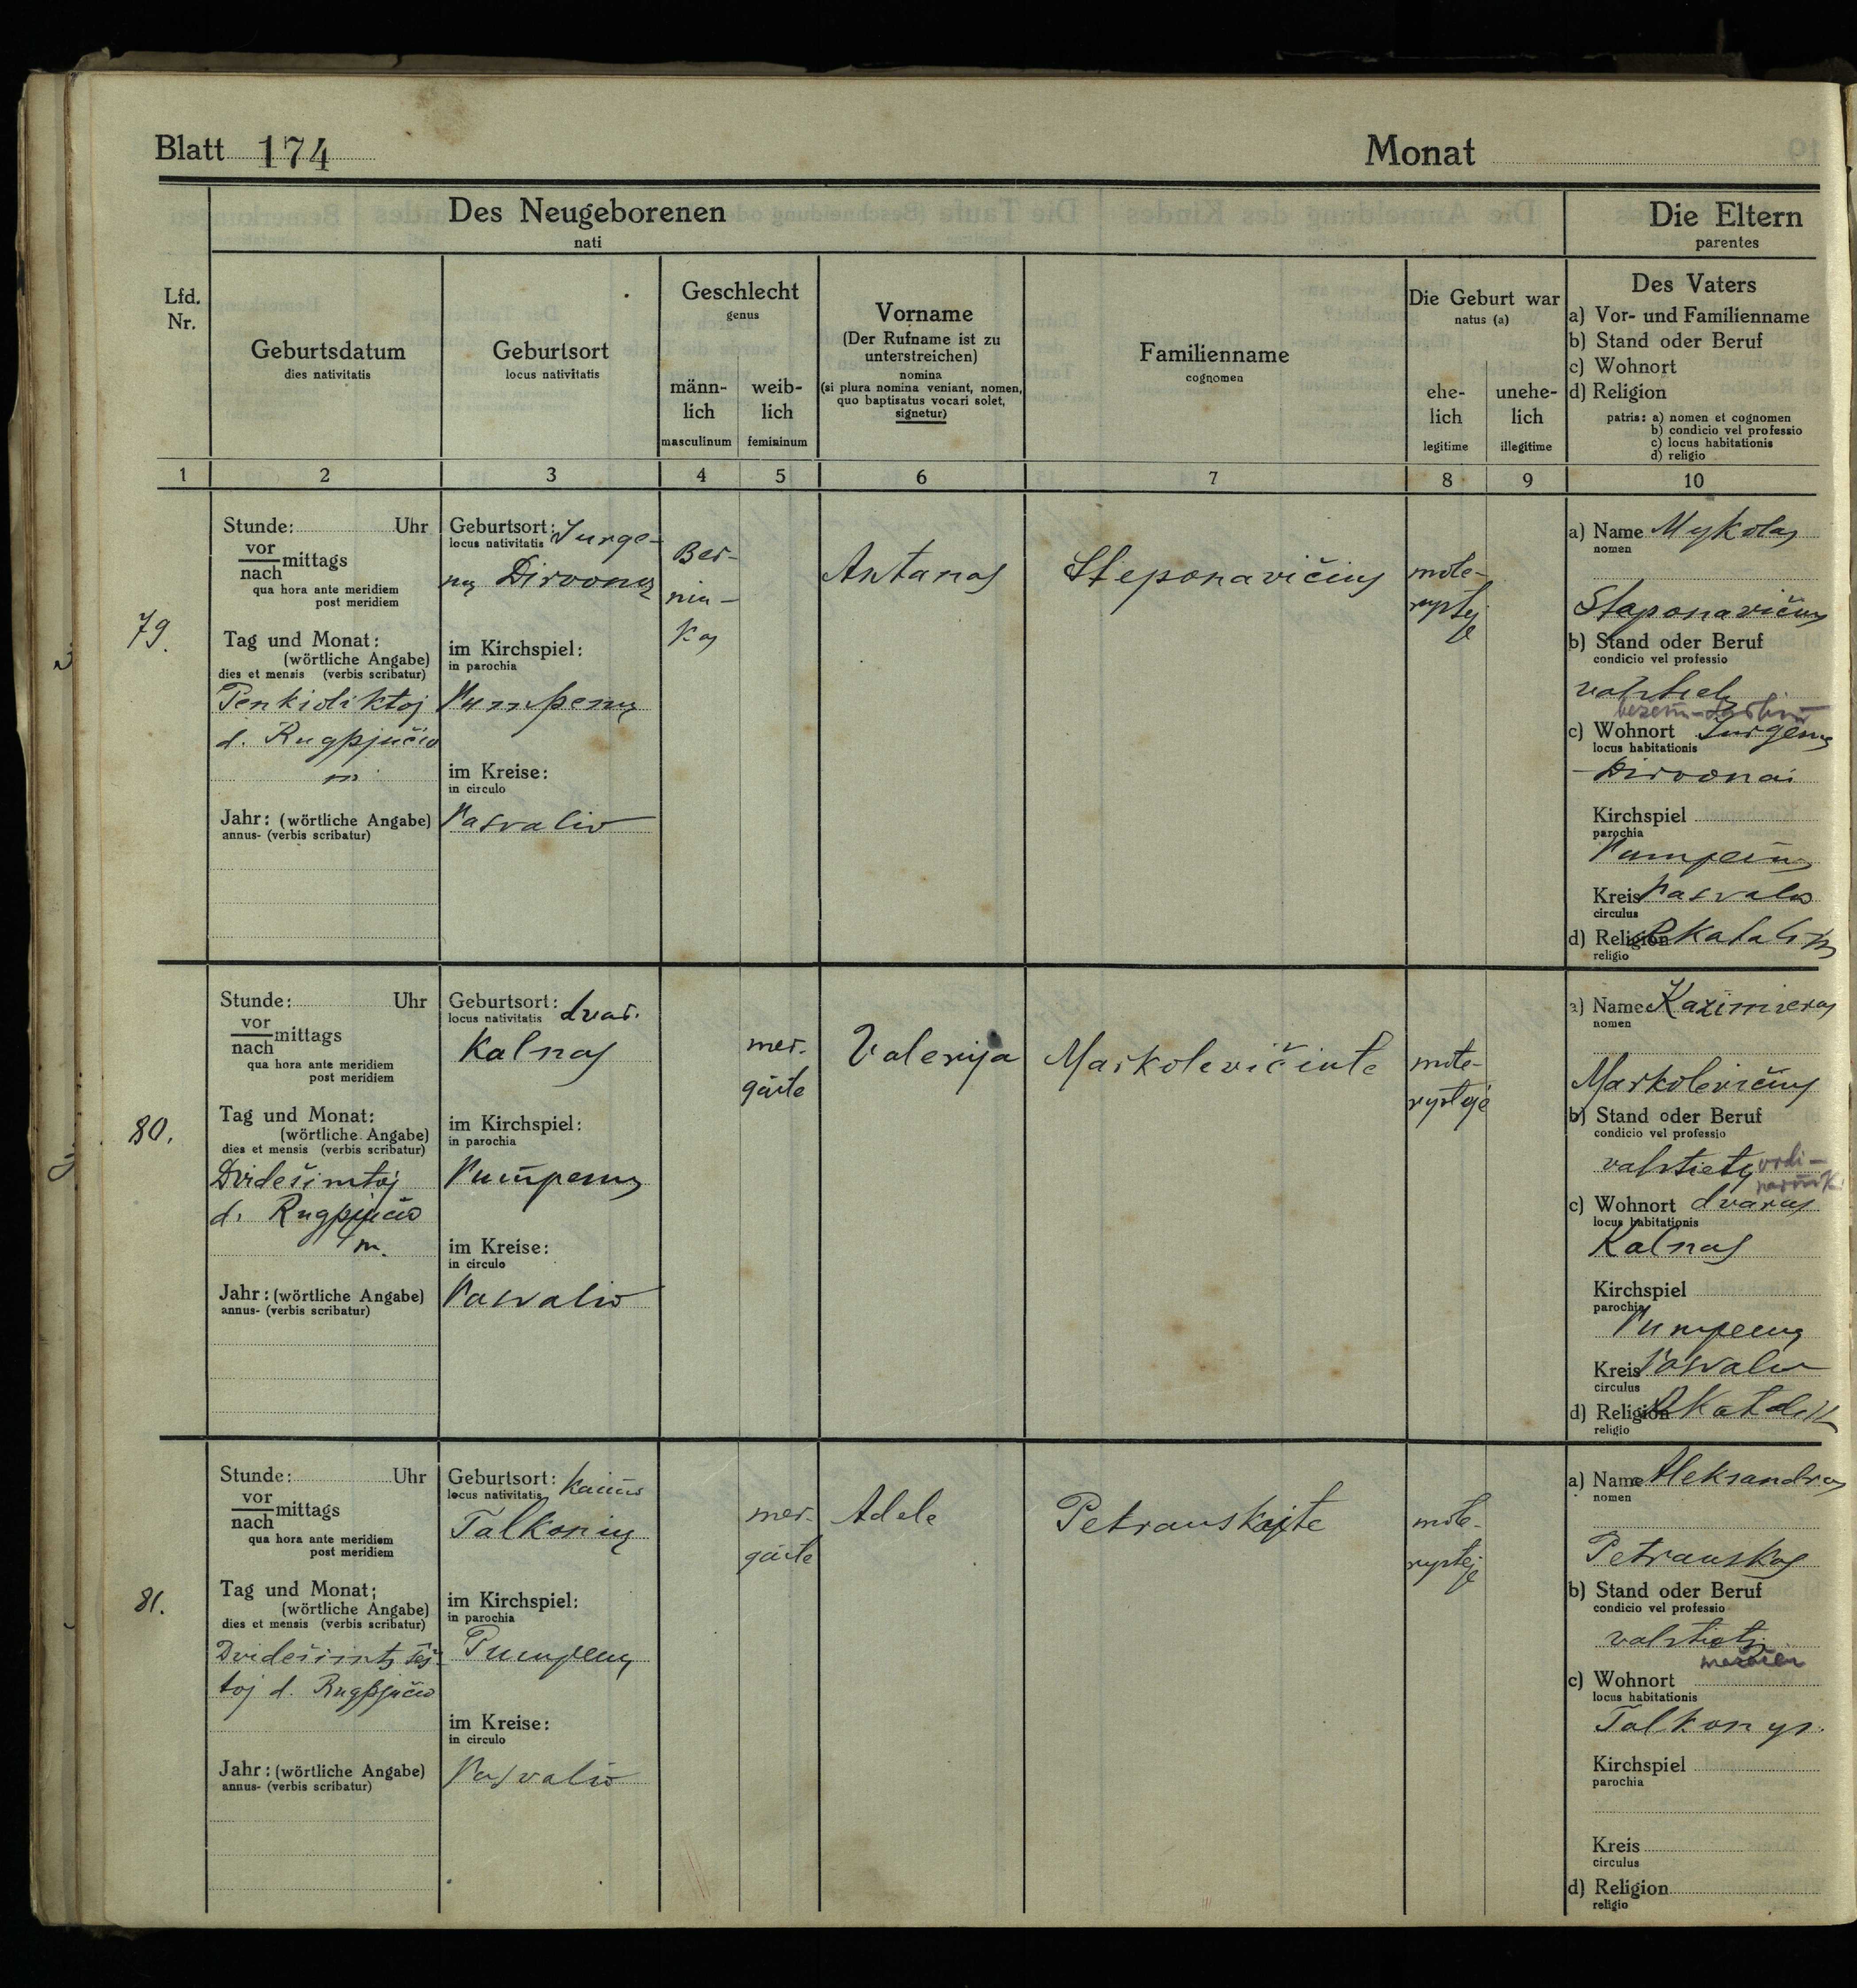 Blatt 174
Monat
Des Neugeborenen
nati
Die Eltern
parentes
Lfd.
Nr.
Geburtsdatum
dies nativitatis
Geburtsort
locus nativitatis
Geschlecht
genus
männ-
lich
masculinum
weib-
lich
femininum
Vorname
(Der Rufname ist zu
unterstreichen)
nomina
(si plura nomina veniant, nomen,
quo baptisatus vocari solet,
signetur)
Familienname
cognomen
Die Geburt war
natus (a)
ehe-
lich
legitime
unehe-
lich
illegitime
Des Vaters
a) Vor- und Familienname
b) Stand oder Beruf
c) Wohnort
d) Religion
patris: a) nomen et cognomen
b) condicio vel professio
c) locus habitationis
d) religio
1 2 3 4 5 6 7 8 9 10
79.
Stunde: Uhr
vor
nach mittags
qua hora ante meridiem
post meridiem
Tag und Monat:
(wörtliche Angabe)
dies et mensis (verbis scribatur)
Penkioliktoj
d. Rugpjučio
m.
Jahr: (wörtliche Angabe)
annus- (verbis scribatur)
Geburtsort: Jurge-
locus nativitatis
nų Dirvonų
im Kirchspiel:
in parochia
Pumpenų
im Kreise:
in circulo
Pasvalio
Ber-
niu-
kas
Antanas
Steponavičius
mote-
rystėj
e
a) Name Mykolas
nomen
Steponavičius
b) Stand oder Beruf
condicio vel professio
valstietį
c) Wohnort Jurgenų
locus habitationis
Dirvonai
Kirchspiel
parochia
Pumpėnų
Kreis Pasvalio
circulus
d) Religion R Katalikų
religio
80.
Stunde: Uhr
vor
nach mittags
qua hora ante meridiem
post meridiem
Tag und Monat:
(wörtliche Angabe)
dies et mensis (verbis scribatur)
Dvidešimtoj
d. Rugpjučio
m.
Jahr: (wörtliche Angabe)
annus- (verbis scribatur)
Geburtsort: dvar.
locus nativitatis
Kalnas
im Kirchspiel:
in parochia
Pumpenų
im Kreise:
in circulo
Pasvalio
mer-
gaitė
Valerija
Markolevičiute
mote-
rystėje
a) Name Kazimieras
nomen
Markolevičius
b) Stand oder Beruf
condicio vel professio
valstietų
c) Wohnort dvaras
locus habitationis
Kalnas
Kirchspiel
parochia
Pumpenų
Kreis Pasvalio
circulus
d) Religion R Katalik
religio
81.
Stunde: Uhr
vor
nach mittags
qua hora ante meridiem
post meridiem
Tag und Monat:
(wörtliche Angabe)
dies et mensis (verbis scribatur)
Dvidešimtų šeš-
toj d. Rugpjučio
Jahr: (wörtliche Angabe)
annus- (verbis scribatur)
Geburtsort: Kaimo
locus nativitatis
Talkonių
im Kirchspiel:
in parochia
Pumpenų
im Kreise:
in circulo
Pasvalio
mer-
gaitė
Adele
Petrauskajte
mote-
rystėj
e
a) Name Aleksandras
nomen
Petrauskas
b) Stand oder Beruf
condicio vel professio
valstietų
c) Wohnort
locus habitationis
Talkonys.
Kirchspiel
parochia
Kreis
circulus
d) Religion
religio